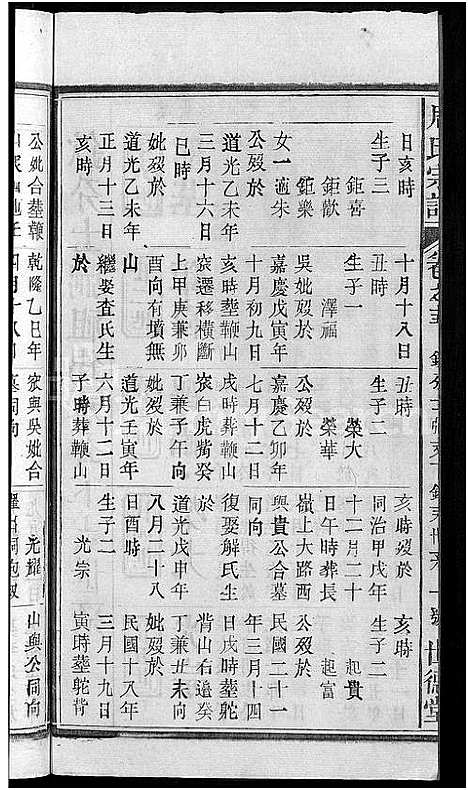 周氏宗譜
卷之五
世德堂
日亥時
生子三
鉅喜
鉅歡
鉅樂
女一適朱
公歿於
道光乙未年
三月十六日
巳時
妣歿於
道光乙未年
正月十三日
亥時
十月十八日
丑時
生子一
澤福
吳妣歿於
嘉慶戊寅年
十月初九日
亥時塟鞭山
窊遷移橫斷
上甲庚兼卯
酉向有墳無
山
繼娶査氏生
於
丑時
生子二
榮大
榮華
公歿於
嘉慶乙卯年
七月十二日
戌時塟鞭山
窊白虎觜癸
丁兼子午向
妣歿於
道光壬寅年
六月十二日
子時葬鞭山
亥時歿於
同治甲戌年
十二月二十
日午時葬長
嶺上大路西
與貴公合墓
同向
復娶解氏生
於
道光戊申年
八月二十八
日酉時
生子二
光宗
亥時
生子二
起貴
起富
公歿於
民國二十一
年三月十四
日戌時塟鴕
背山右邉癸
丁兼丑未向
妣歿於
民國十八年
三月十九日
寅時塟鴕背
公妣合塟鞭
乾隆乙巳年
窊與吳妣合
光耀
山與公同向